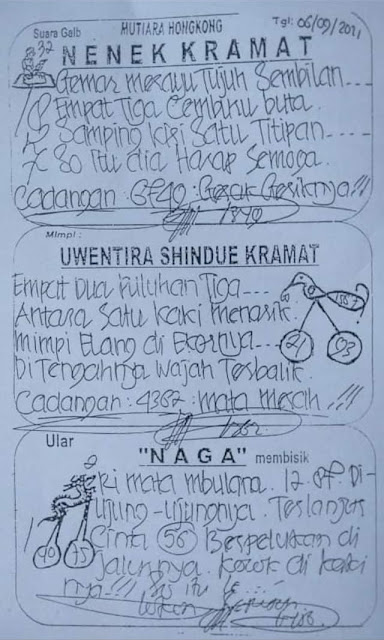 Suara Gaib
MUTIARA HONGKONG
Tgl: 06/09/2021
32
NENEK KRAMAT
Gemar merayu Tujuh Sembilan...
Empat Tiga Cemburu buta.
Samping kiri Satu Titipan----
80 itu dia Harap Semoga.
Cadangan: 6740:
Mimpi:
UWENTIRA SHINDUE KRAMAT
Empat Dua Puluhan Tiga---
Antara Satu kaki menarik.
Mimpi Elang di Ekornya---
Di Tengahnya Wajah Terbalik.
Cadangan: 4387: mata merah !!!
21
03
Ular
"NAGA" membisik
Ri mata mbulana. 12.07. Di-
ujung-ujungnya Terlanjur
Cinta 56 Berpelukan di
Jalurnya. di kaki
nya !!! itu
75